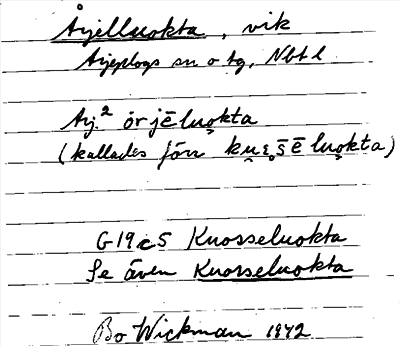 Årjelluokta, vik
Arjeplogs sn o tg, Nbtl
Arj.² örjēluo̮kta
(kallades förr ku̮ɛ̮s̄ēluo̮kta)
G19c5 Kuosseluokta
Se även Kuosseluokta
Bo Wickman 1942